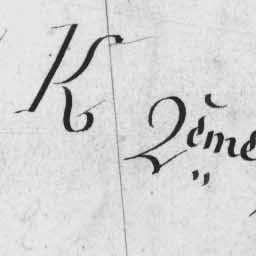 K 2ème